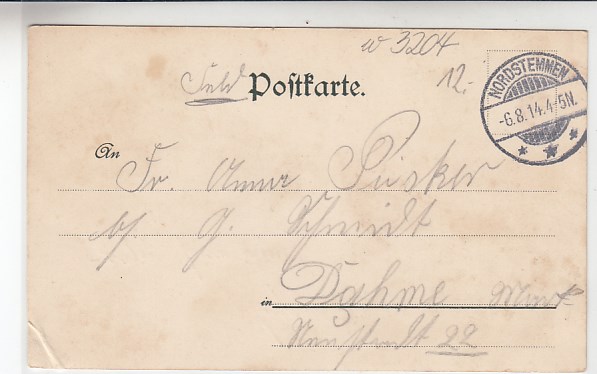 w 3204
12.-
Feld Postkarte.
NORDSTEMMEN
-6.8.14.4-5N.
An
Fr. Anna Püsker
b/ G. Schmidt
in Dahme Mark
Neustadt 22